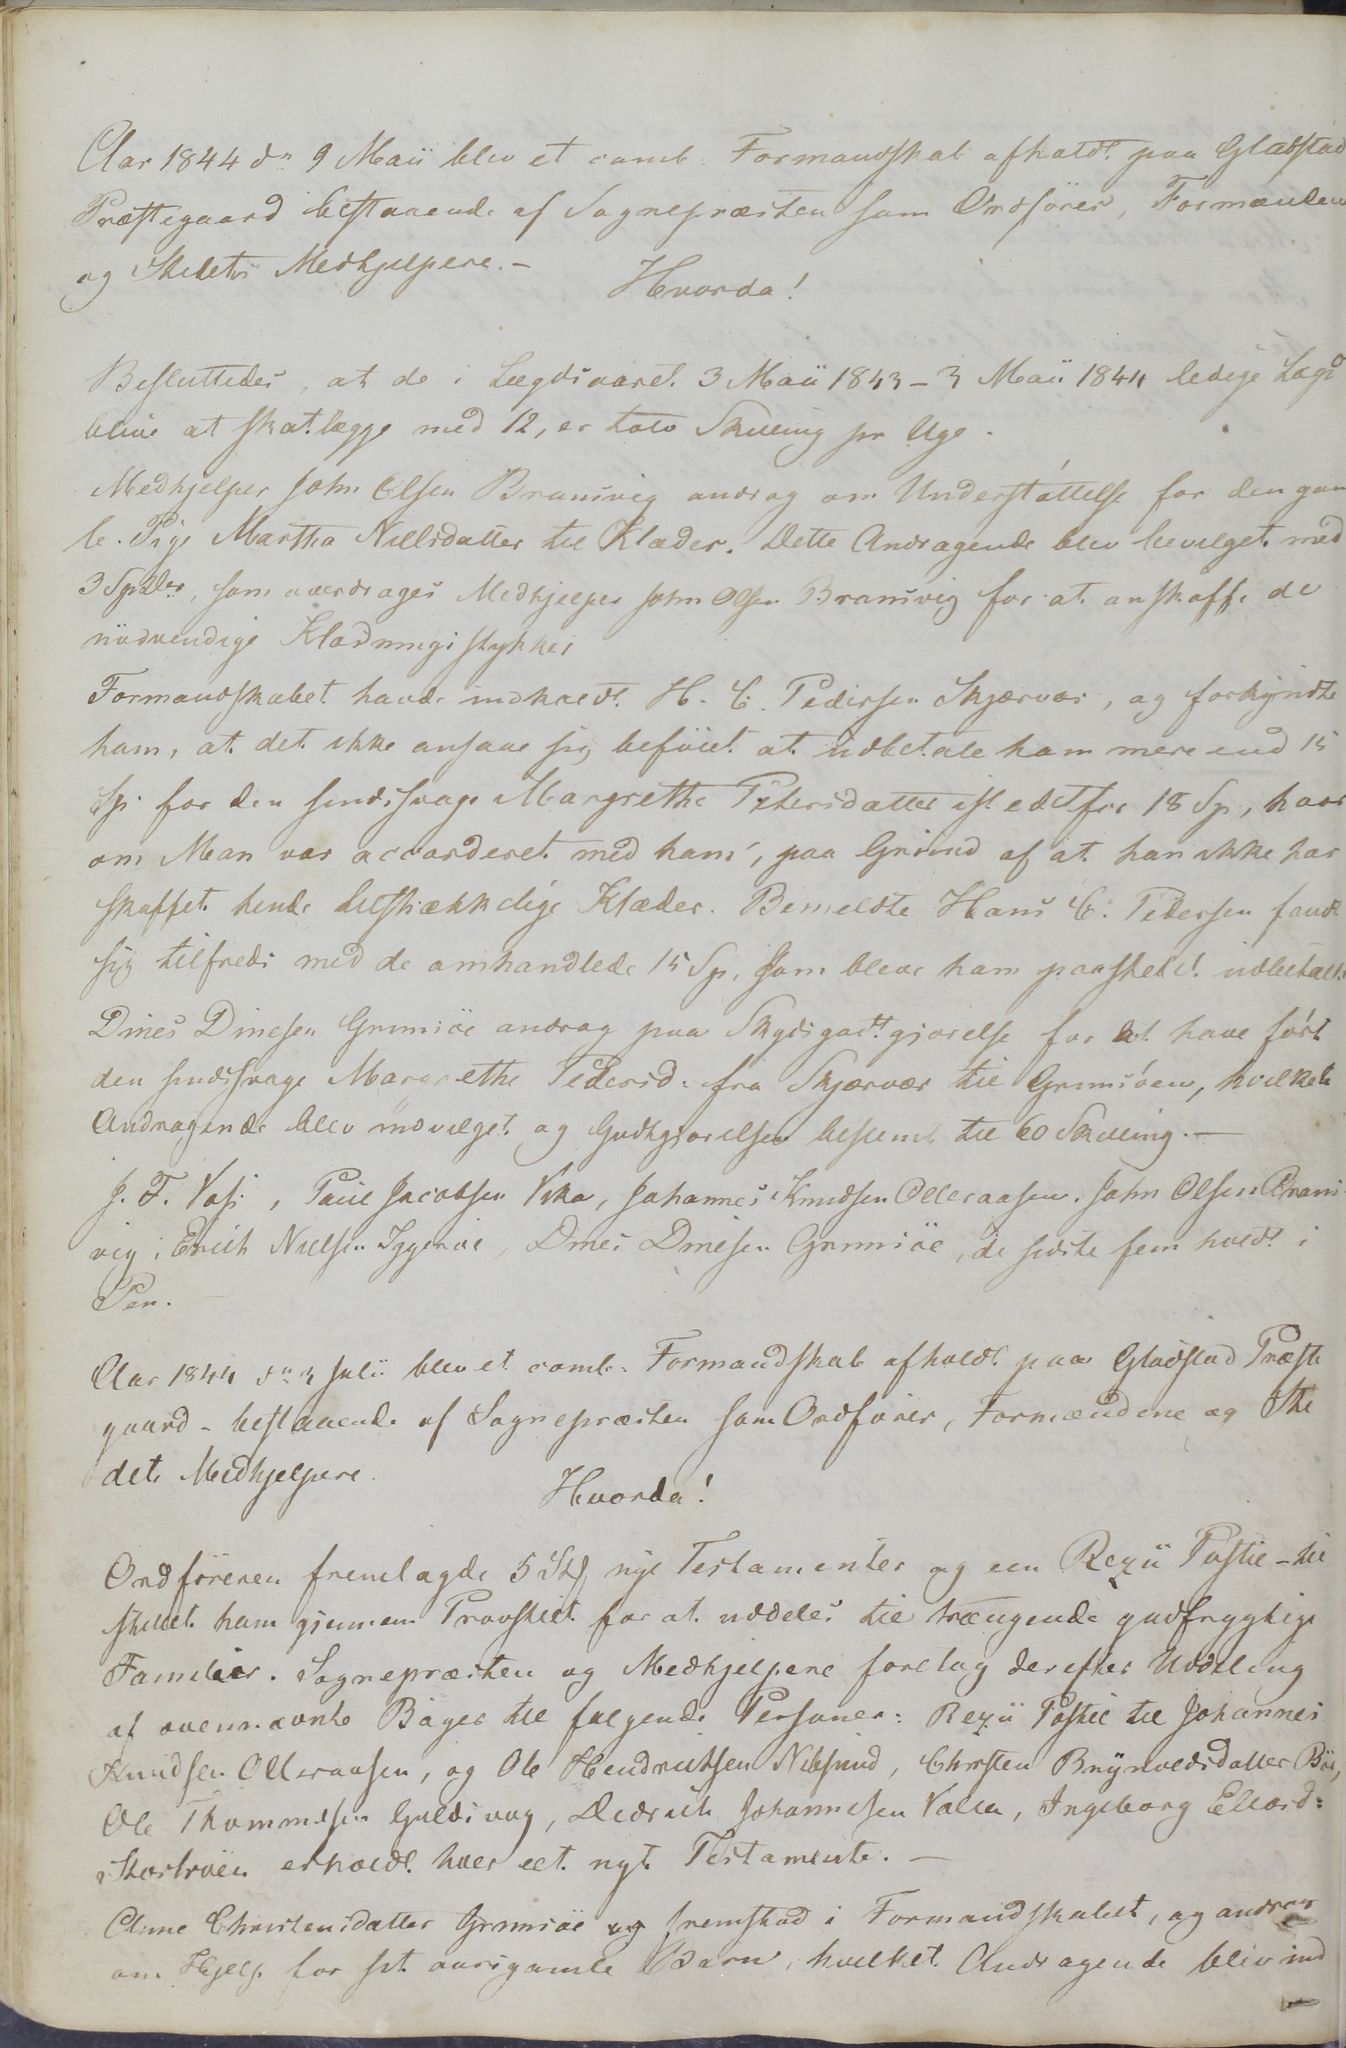 Aar 1844 dn 9 Maii blev et comb. Formandskab afholdt paa Gladstad
Præstegaard bestaaende af Sognepræsten som Ordfører, Formænden
og Stedets Medhjelpere. -
Hvorda!
Besluttedes, at de i Lægdsaaret 3 Maii 1843 - 3 Maii 1844 ledige Lægd
blive at skatlægge med 12, er tolv Skilling pr Uge.
Medhjelper John Olsen Bransvig androg om Understøttelse for den gam
le Pige Martha Nielsdatter til Klæder. Dette Andragende blev bevilget med
3 Spdlr, som overdrages Medhjelper John Olsen Bransvig for at anskaffe de
nödvendige Klædningsstykker
Formandskabet havde indkaldt H. C. Pedersen Skjærvær, og forkyndte
ham, at det ikke ansaae sig beføiet at udbetale ham mere end 15
Sp. for den sindssvage Margrethe Petersdatter istedetfor 18 Sp., hvor
om Man var accorderet med ham, paa Grund af at han ikke har
skaffet hende tilstrækkelige Klæder. Bemeldte Hans C. Pedersen fandt
sig tilfreds med de omhandlede 15 Sp. som bleve ham paastedet udbetalt.
Dines Dinesen Grimsöe androg paa Skydsgodtgjørelse for at have ført
den sindssvage Margrethe Pedersd. fra Skjærvær til Grimsöen, hvilket
Andragende blev indvilget og Godtgjørelsen bestemt til 60 Skilling. -
J. F. Vosz, Paul Jacobsen Vika, Johannes Knudsen Olleraasen, John Olsen Brans
vig, Erich Nielsen Iggeröe, Dines Dinesen Grimsöe, de sidste fem holdt i
Pen.
Aar 1844 dn 3 Julii blev et comb. Formandskab afholdt paa Gladstad Præste
gaard - bestaaende af Sognepræsten som Ordfører, Formændene og Ste
dets Medhjelpere.
Hvorda!
Ordføreren fremlagde 5 Stk nye Testamenter og een Rexii Postil - til
stillet ham gjennem Provstiet for at uddeles til trængende gudfrygtige
Familier. Sognepræsten og Medhjelpere foretog derefter Uddeling
af ovennævnte Bøger til følgende Personer: Rexii Postil til Johannes
Knudsen Olleraasen, og Ole Hendrichsen Nilsund, Chirsten Brynveldsdatter Bøe,
Ole Thommesen Guldsvag, Didrich Johannesen Valla, Ingeborg Ellevd:
Storbraein erholdt hver eet nyt Testamente. -
Anne Christensdatter Grimsöe og fremstod i Formandskabet, og androg
om Hjelp for sit aarsgamle Barn, hvilket Andragende blev ind